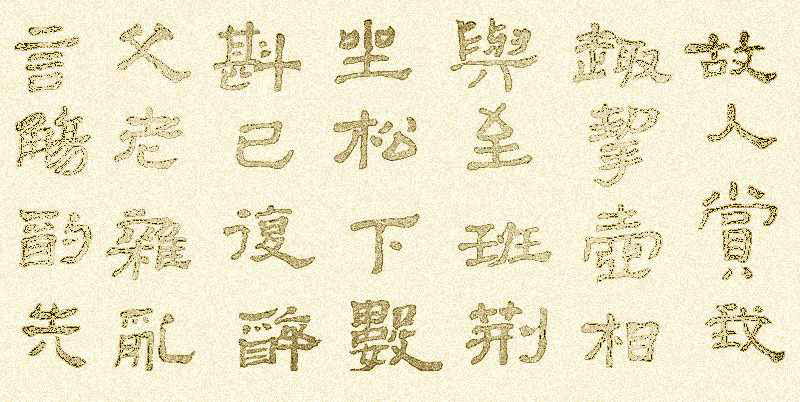 故人賞我
趣挈壺相
與至班荊
坐松下數
斟已復醉
父老雜亂
言觴酌失